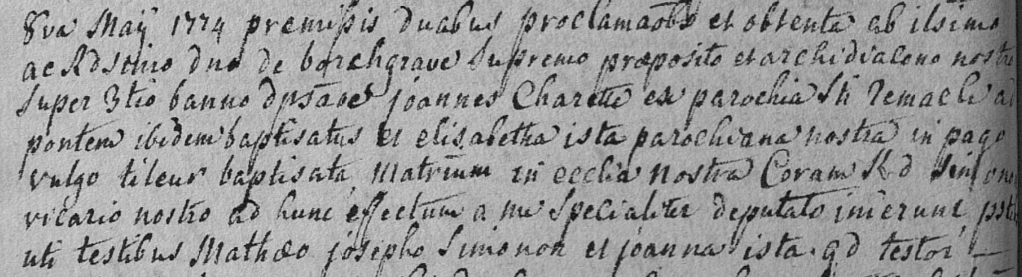 8va Maÿ 1774 premissis duabus proclamaõbs et obtenta ab ilsimo
ac Rdsimo dno de borchgrave supremo præposito et archidiacono nostro
super 3tio banno dpsãoe joannes Charette ex parochia Sti Remacli ad
pontem ibidem baptisatus et elisabetha ista parochiana nostra in pago
vulgo tileur baptisata matrium in ecclia nostra Coram Rd
vicario nostro ad hunc effectum a me specialiter deputato inierunt pstibus
uti testibus Mathæo josepho Simonon et joanna ista qd testor